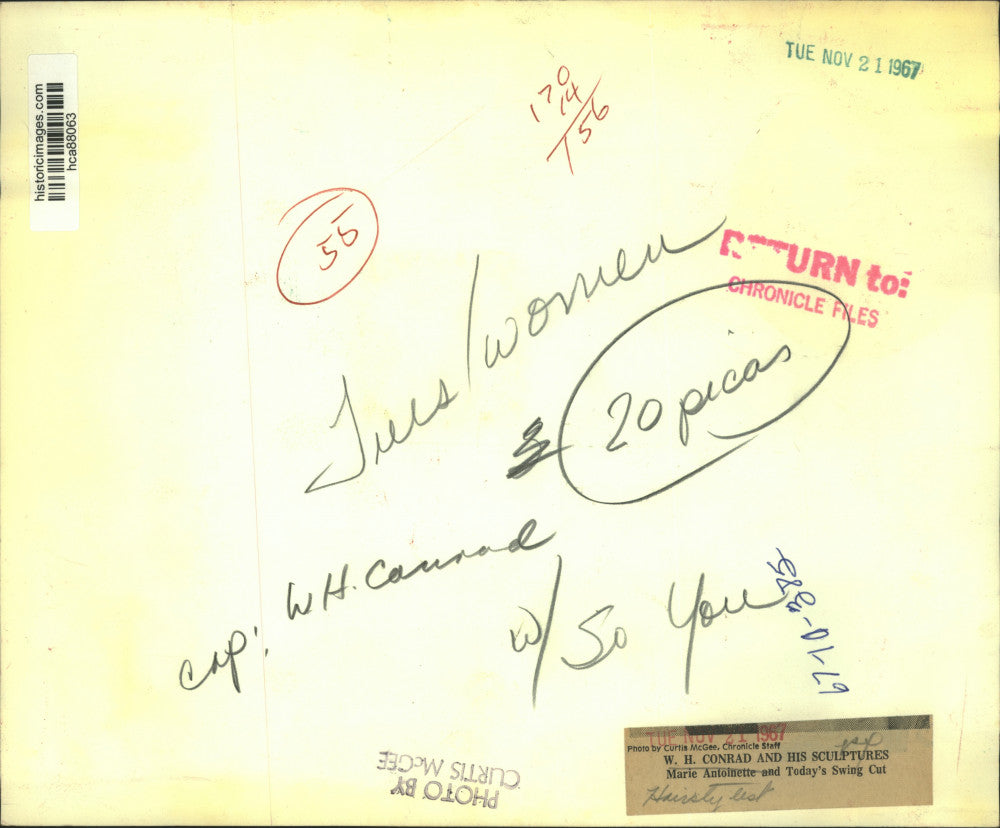 historicimages.com
hca88063
TUE NOV 21 1967
170
14
156
55
RETURN to:
CHRONICLE FILES
Tues/women
20 picas
cap: W.H. Conrad
w/ So You
67-10-285
PHOTO BY
CURTIS McGEE
TUE NOV 21 1967
Photo by Curtis McGee, Chronicle Staff
W. H. CONRAD AND HIS SCULPTURES
Marie Antoinette and Today's Swing Cut
Hairstylist